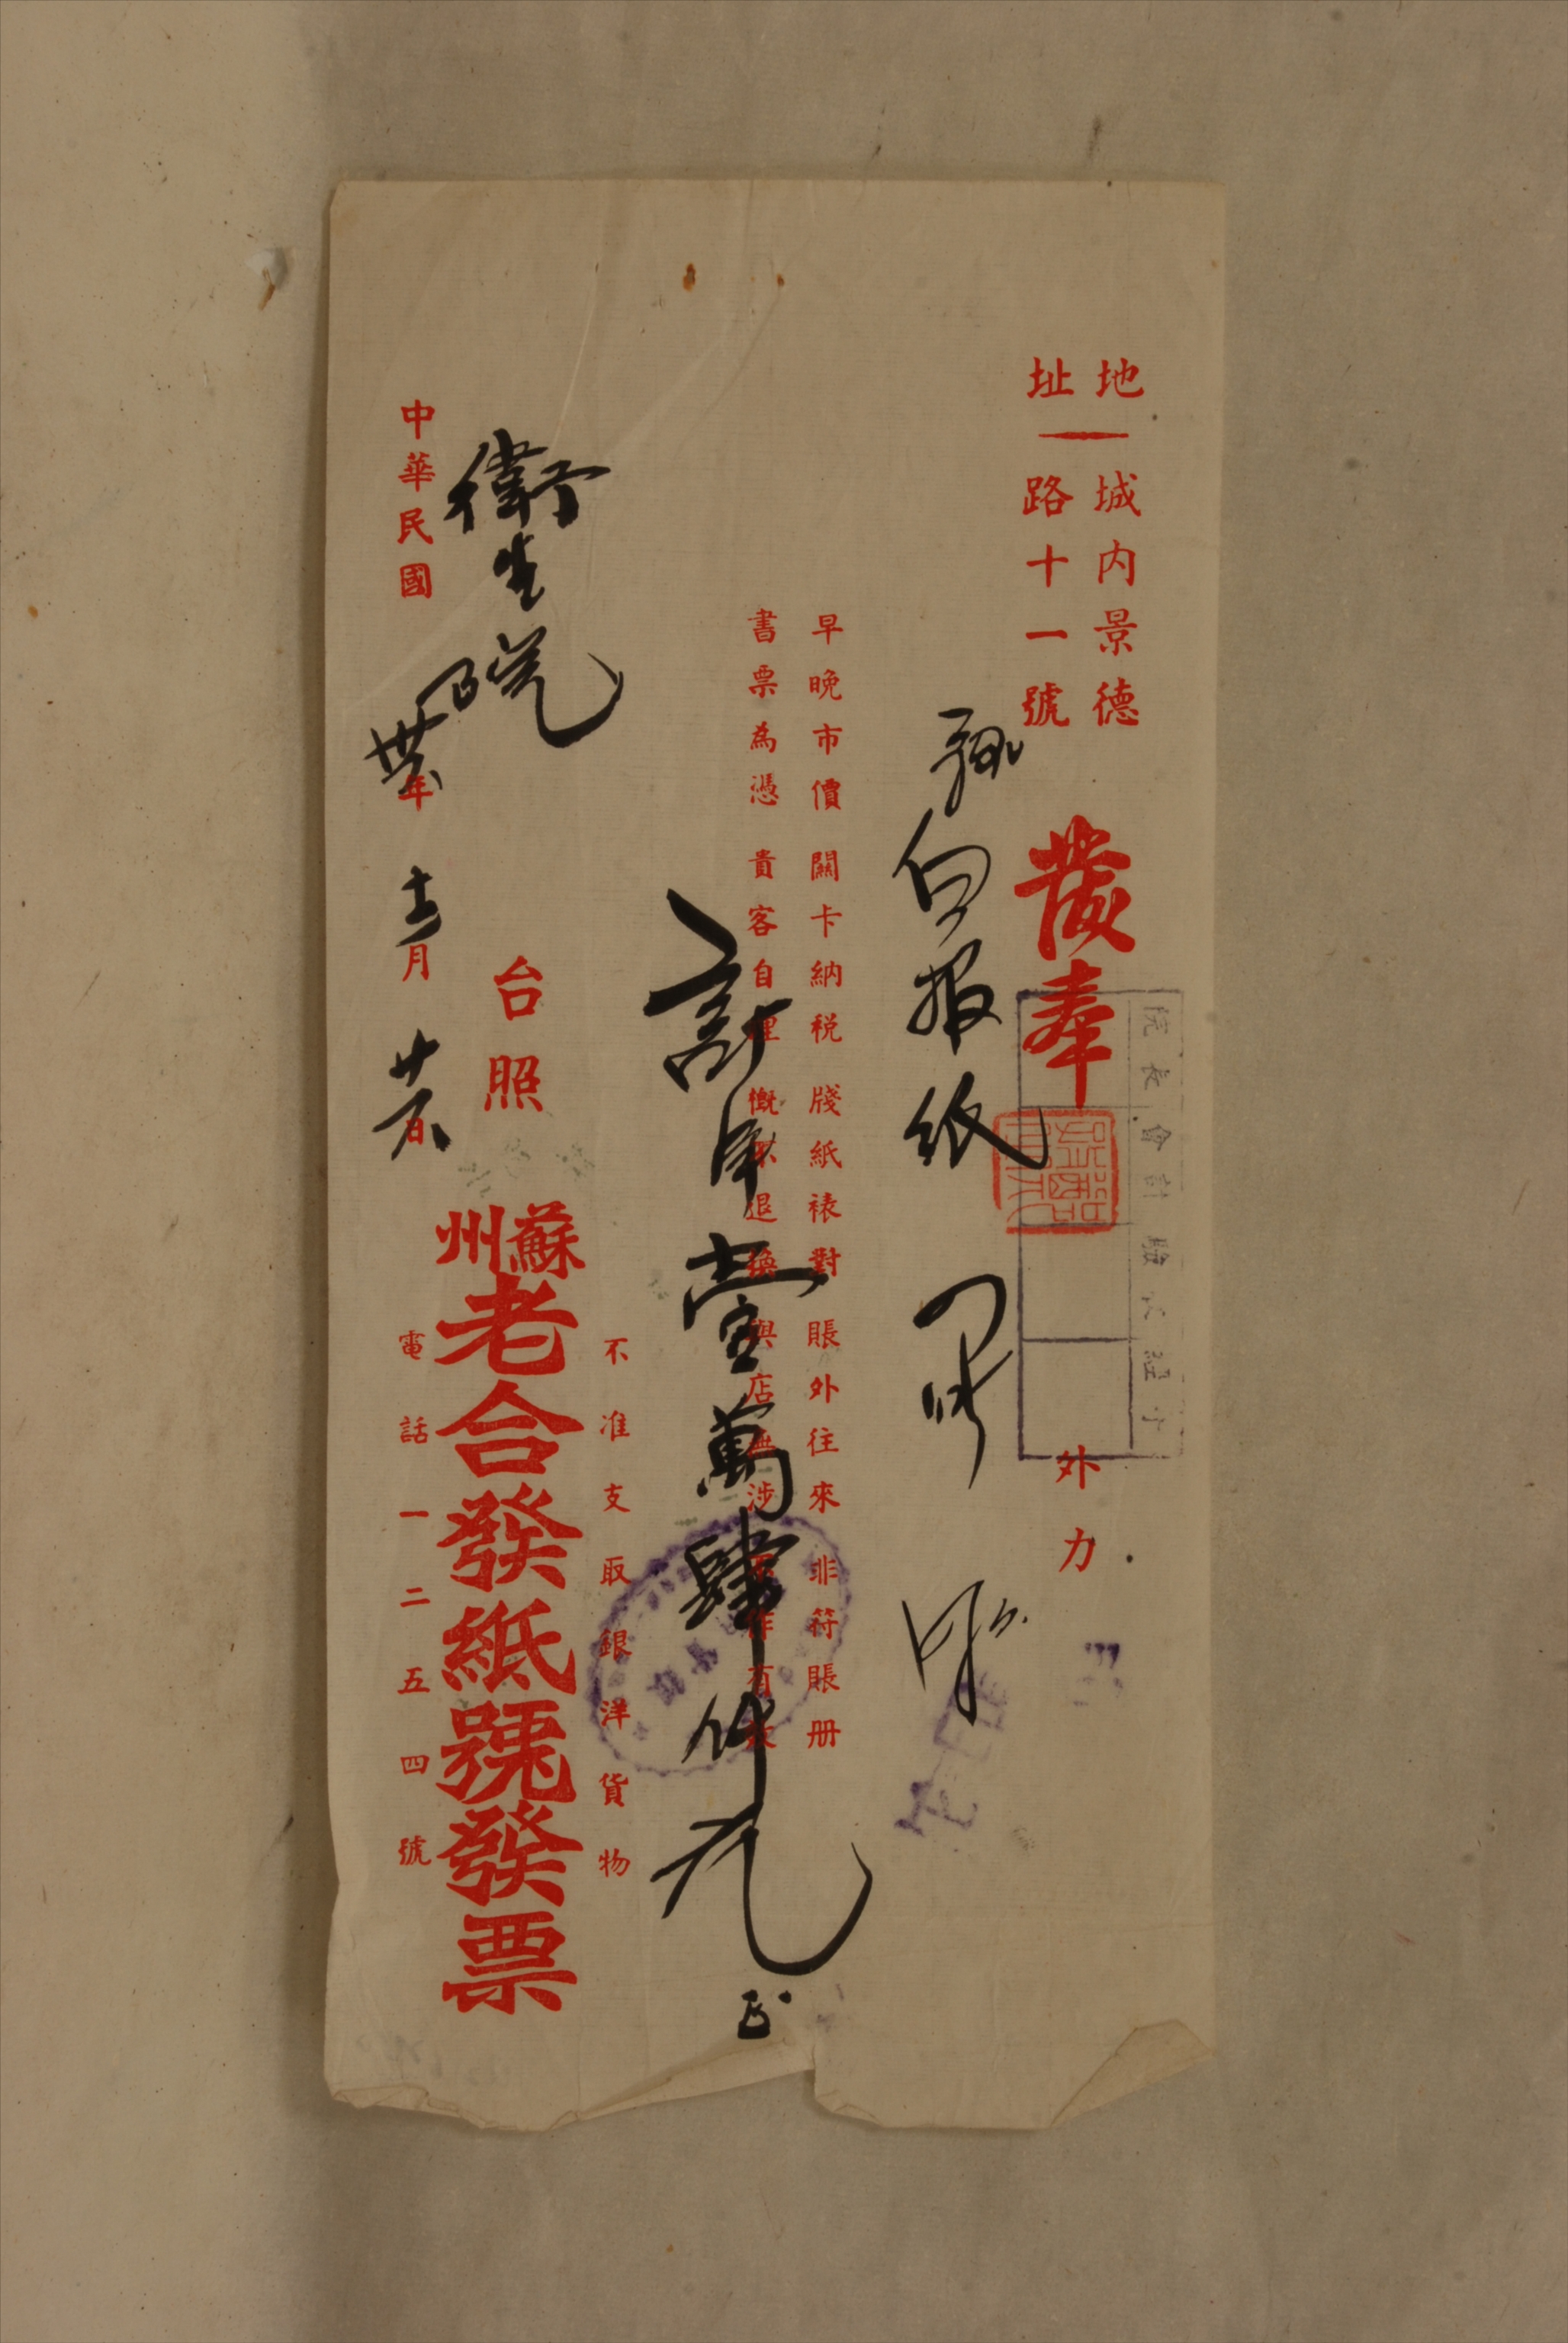 地址 城內景德路十一號
發奉
外力
白报纸
早晚市價 關卡納税 牋紙裱對 賬外往來 非符賬册
書票為憑 貴客自理 概不退換 與店無涉 不作有效
計洋壹萬肆仟元正
不准支取銀洋貨物
衛生院
台照
蘇州老合發紙號發票
電話一二五四號
中華民國卅四年十二月廿六日
院長 會計